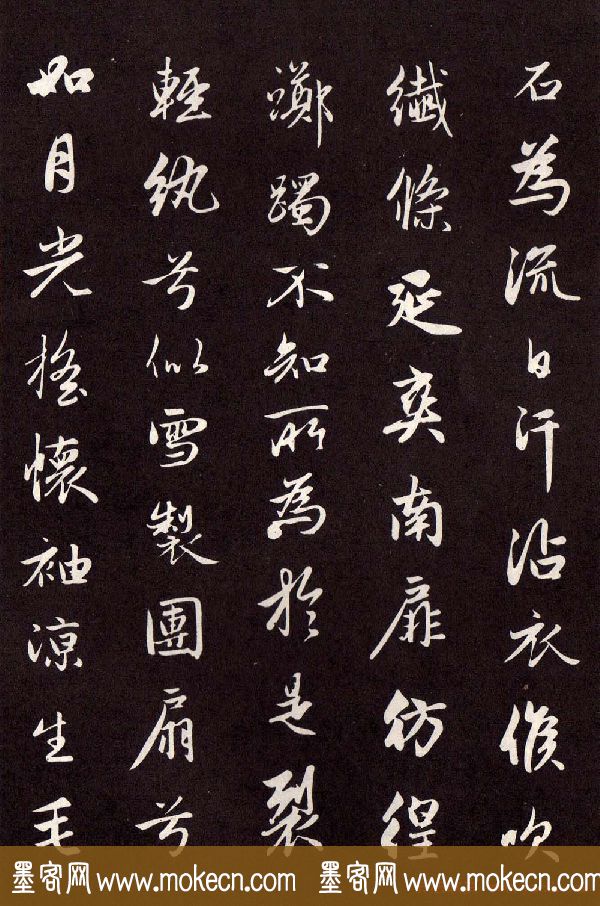 石為流日汗沾衣候吹
纖條延爽南扉彷徨
躑躅不知所為於是裂
輕紈兮似雪製團扇兮
如月光搖懷袖涼生毛
墨客网 www.mokecn.com 墨客网 www.mokecn.com